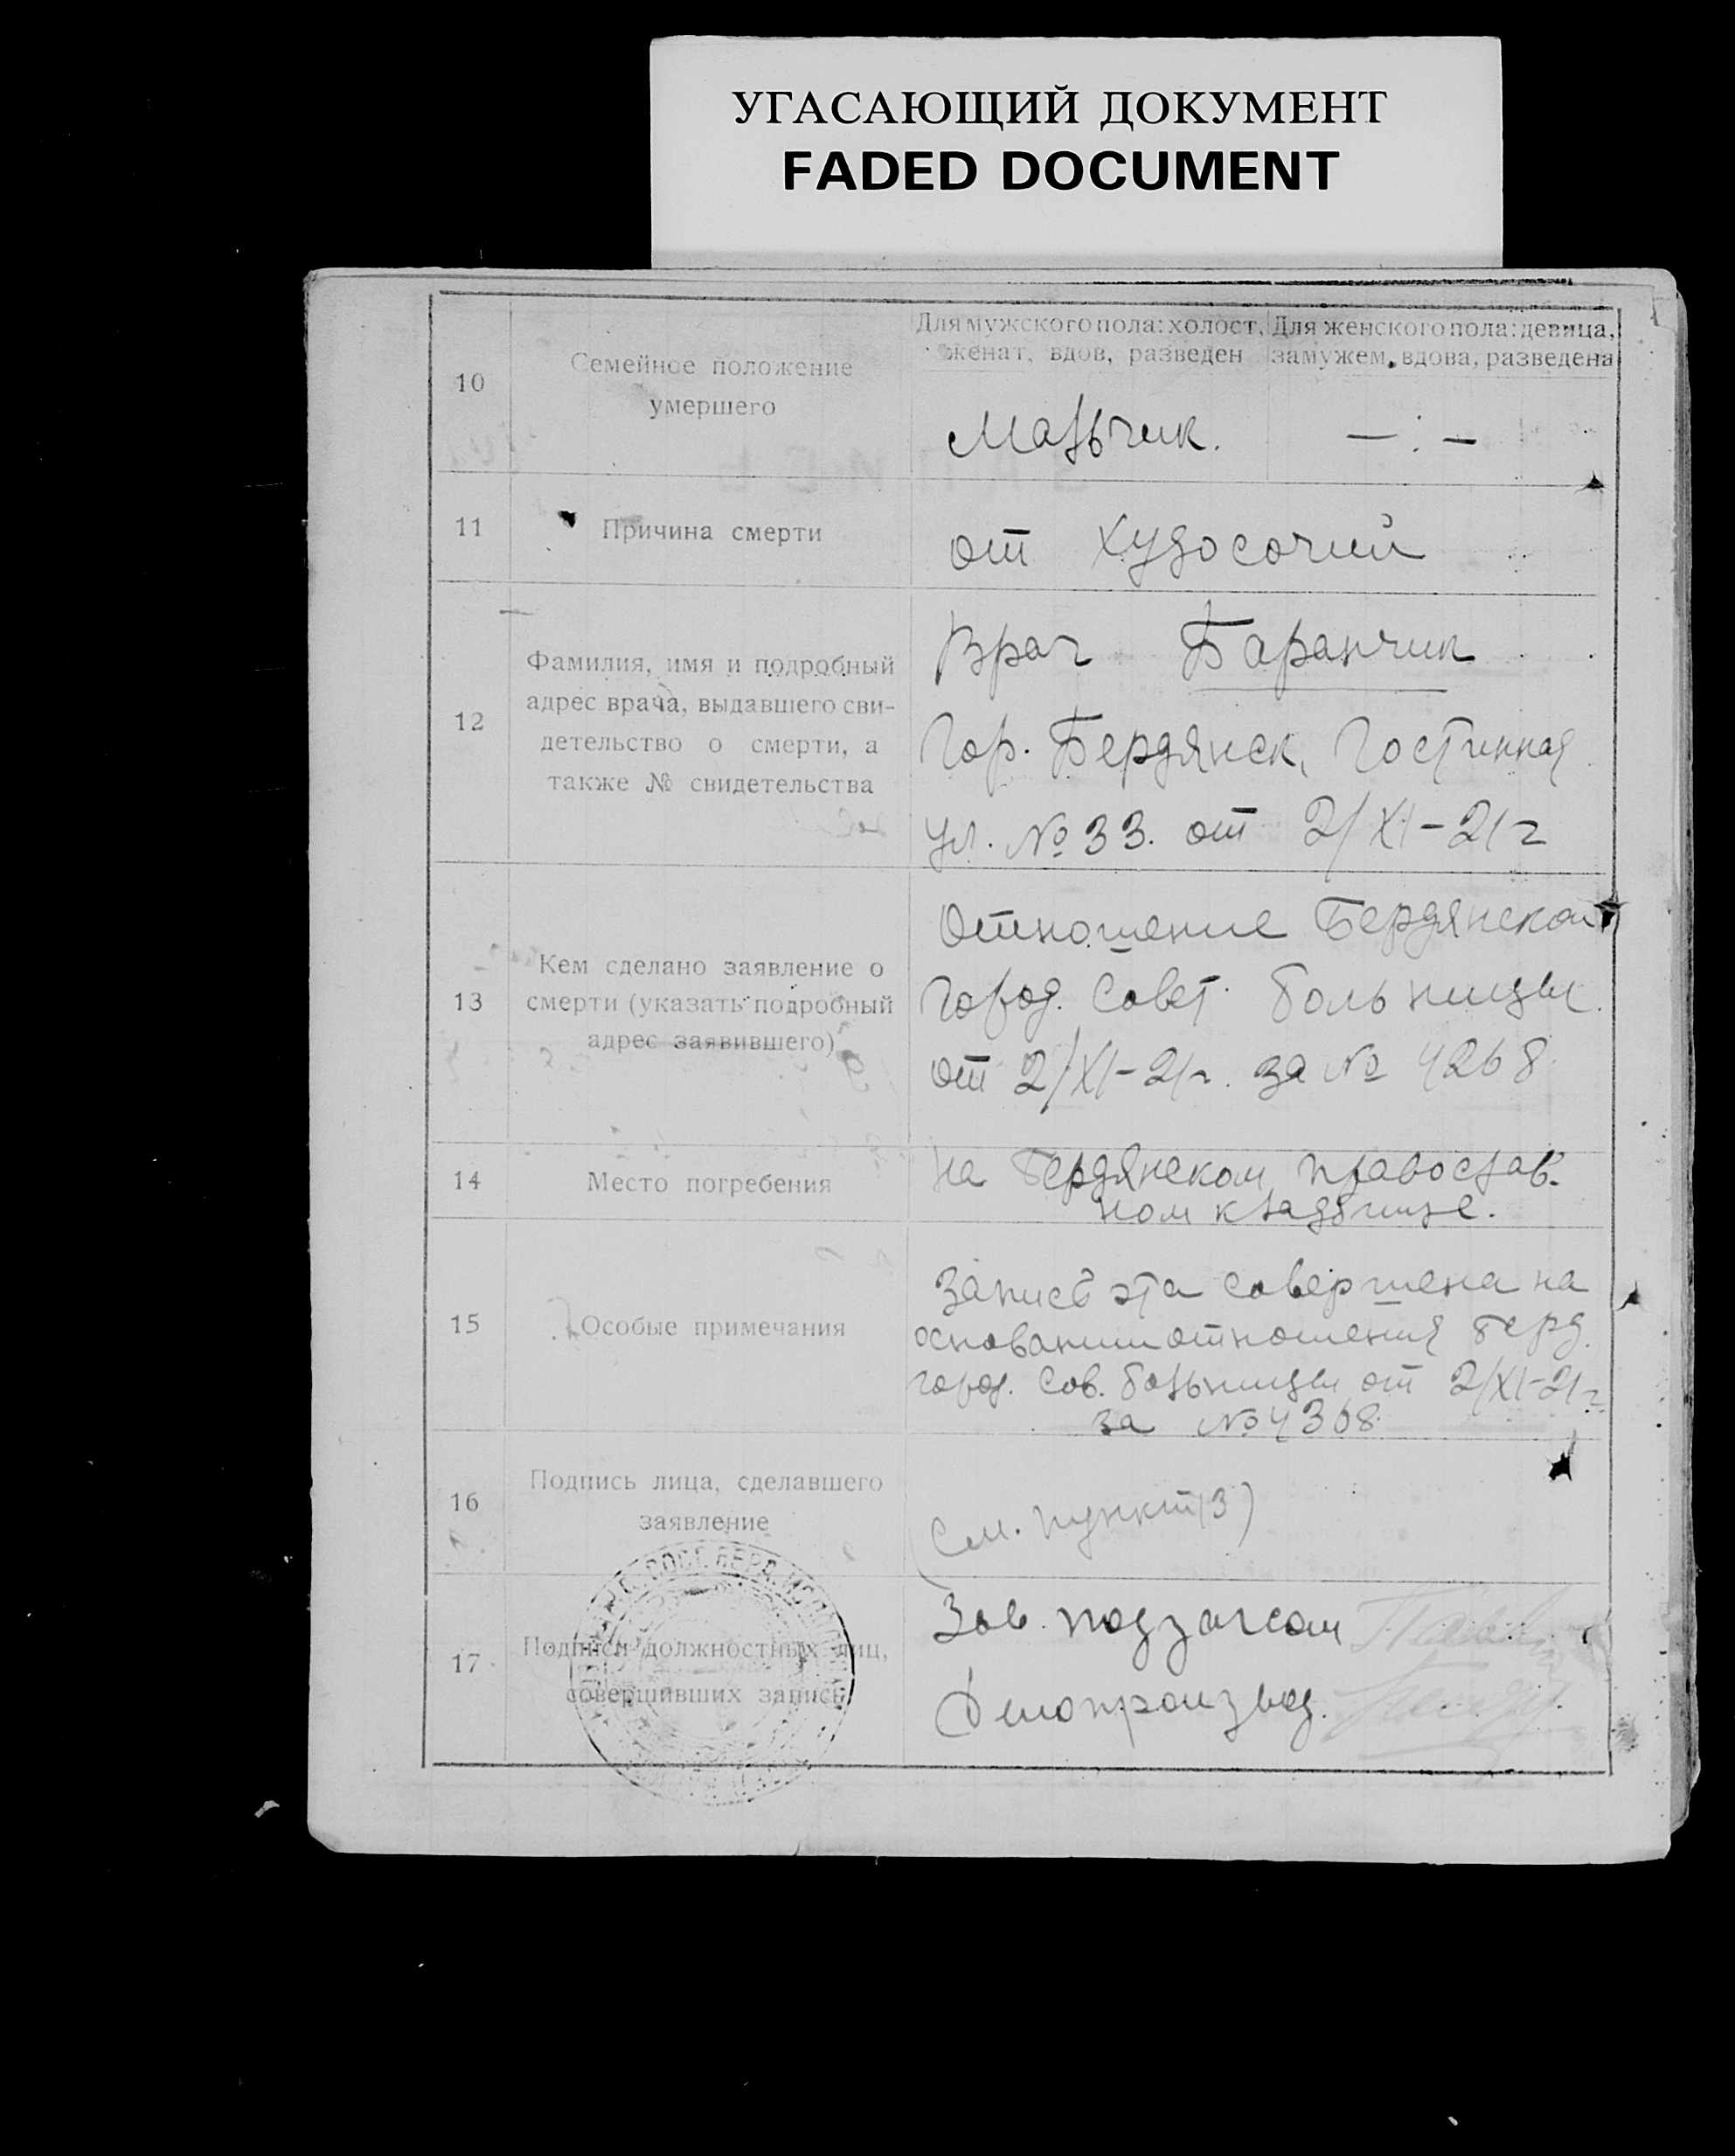 УГАСАЮЩИЙ ДОКУМЕНТ
FADED DOCUMENT
Для мужского пола: холост, женат, вдов, разведен
Для женского пола: девица, замужем, вдова, разведена
10
Семейное положение
умершего
Мальчик.
— : —
11
Причина смерти
от худосочий
12
Фамилия, имя и подробный
адрес врача, выдавшего сви-
детельство о смерти, а
также № свидетельства
Врач Баранчик
Гор. Бердянск, Гостинная
ул. № 33. от 2/XI-21 г
13
Кем сделано заявление о
смерти (указать подробный
адрес заявившего)
Отношение Бердянской
Город. Совет. больницы
от 2/XI-21 г. за № 4268
14
Место погребения
на Бердянском православ-
ном кладбище.
15
Особые примечания
Запись эта совершена на
основании отношения Берд.
город. Сов. больницы от 2/XI-21 г.
за № 4368
16
Подпись лица, сделавшего
заявление
(См. пункт 13)
17
Подписи должностных лиц,
совершивших запись
Зав. подзагсом
Делопроизвод.